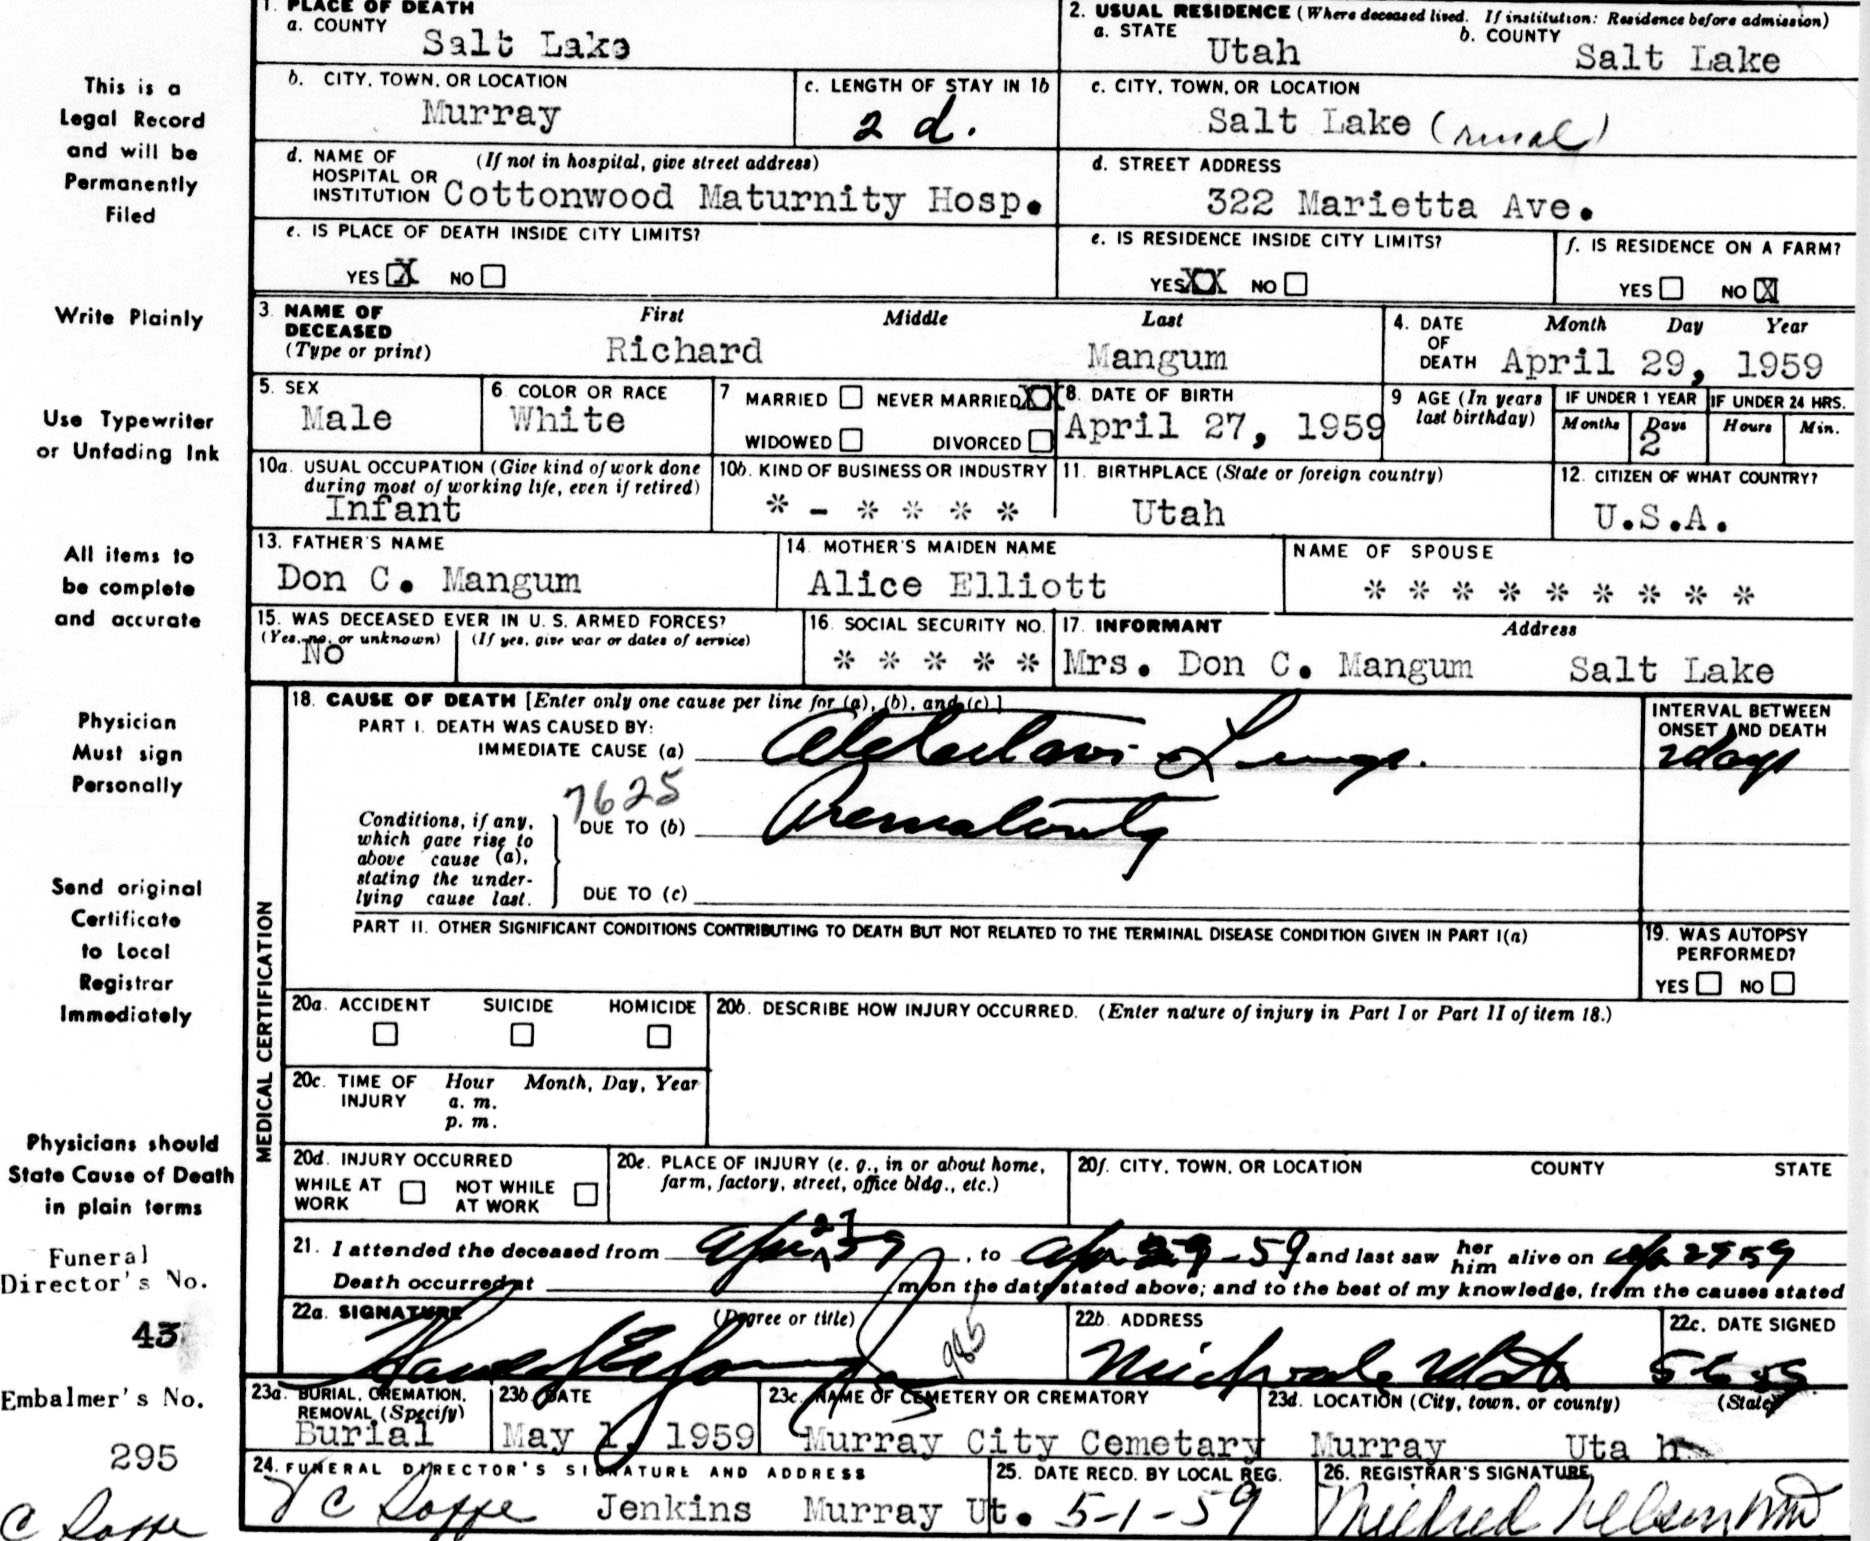 1. PLACE OF DEATH
a. COUNTY
Salt Lake
2. USUAL RESIDENCE (Where deceased lived. If institution: Residence before admission)
a. STATE
Utah
b. COUNTY
Salt Lake
b. CITY, TOWN, OR LOCATION
Murray
c. LENGTH OF STAY IN 1b
2 d.
c. CITY, TOWN, OR LOCATION
Salt Lake (rural)
d. NAME OF HOSPITAL OR INSTITUTION
(If not in hospital, give street address)
Cottonwood Maturnity Hosp.
d. STREET ADDRESS
322 Marietta Ave.
e. IS PLACE OF DEATH INSIDE CITY LIMITS?
YES X NO
e. IS RESIDENCE INSIDE CITY LIMITS?
YES XX NO
f. IS RESIDENCE ON A FARM?
YES NO X
3. NAME OF DECEASED (Type or print)
First Middle Last
Richard Mangum
4. DATE OF DEATH
Month Day Year
April 29, 1959
5. SEX
Male
6. COLOR OR RACE
White
7 MARRIED NEVER MARRIED X
WIDOWED DIVORCED
8. DATE OF BIRTH
April 27, 1959
9 AGE (In years last birthday)
IF UNDER 1 YEAR
Months Days
2
IF UNDER 24 HRS.
Hours Min.
10a. USUAL OCCUPATION (Give kind of work done during most of working life, even if retired)
Infant
10b. KIND OF BUSINESS OR INDUSTRY
* - * * * *
11. BIRTHPLACE (State or foreign country)
Utah
12. CITIZEN OF WHAT COUNTRY?
U.S.A.
13. FATHER'S NAME
Don C. Mangum
14. MOTHER'S MAIDEN NAME
Alice Elliott
NAME OF SPOUSE
* * * * * * * * *
15. WAS DECEASED EVER IN U. S. ARMED FORCES?
(Yes, no, or unknown) (If yes, give war or dates of service)
No
16. SOCIAL SECURITY NO.
* * * * *
17. INFORMANT Address
Mrs. Don C. Mangum Salt Lake
MEDICAL CERTIFICATION
18. CAUSE OF DEATH [Enter only one cause per line for (a), (b), and (c)]
PART I. DEATH WAS CAUSED BY:
IMMEDIATE CAUSE (a) Atelectasis Lungs.
INTERVAL BETWEEN ONSET AND DEATH
2 days
7625
Conditions, if any, which gave rise to above cause (a), stating the underlying cause last.
DUE TO (b) Prematurity
DUE TO (c)
PART II. OTHER SIGNIFICANT CONDITIONS CONTRIBUTING TO DEATH BUT NOT RELATED TO THE TERMINAL DISEASE CONDITION GIVEN IN PART I(a)
19. WAS AUTOPSY PERFORMED?
YES NO
20a. ACCIDENT SUICIDE HOMICIDE
20b. DESCRIBE HOW INJURY OCCURRED. (Enter nature of injury in Part I or Part II of item 18.)
20c. TIME OF INJURY
Hour Month, Day, Year
a. m.
p. m.
20d. INJURY OCCURRED
WHILE AT WORK NOT WHILE AT WORK
20e. PLACE OF INJURY (e. g., in or about home, farm, factory, street, office bldg., etc.)
20f. CITY, TOWN, OR LOCATION COUNTY STATE
21. I attended the deceased from Apr 27 59, to Apr 29-59 and last saw her him alive on Apr 29 59
Death occurred at m on the date stated above; and to the best of my knowledge, from the causes stated
22a. SIGNATURE (Degree or title)
985
22b. ADDRESS
Midvale Utah
22c. DATE SIGNED
23a. BURIAL, CREMATION, REMOVAL (Specify)
Burial
23b DATE
May 1, 1959
23c. NAME OF CEMETERY OR CREMATORY
Murray City Cemetary
23d. LOCATION (City, town, or county) (State)
Murray Uta h
24. FUNERAL DIRECTOR'S SIGNATURE AND ADDRESS
Jenkins Murray Ut.
25. DATE RECD. BY LOCAL REG.
5-1-59
26. REGISTRAR'S SIGNATURE
Mildred Nelson
This is a
Legal Record
and will be
Permanently
Filed
Write Plainly
Use Typewriter
or Unfading Ink
All items to
be complete
and accurate
Physician
Must sign
Personally
Send original
Certificate
to Local
Registrar
Immediately
Physicians should
State Cause of Death
in plain terms
Funeral
Director's No.
43
Embalmer's No.
295